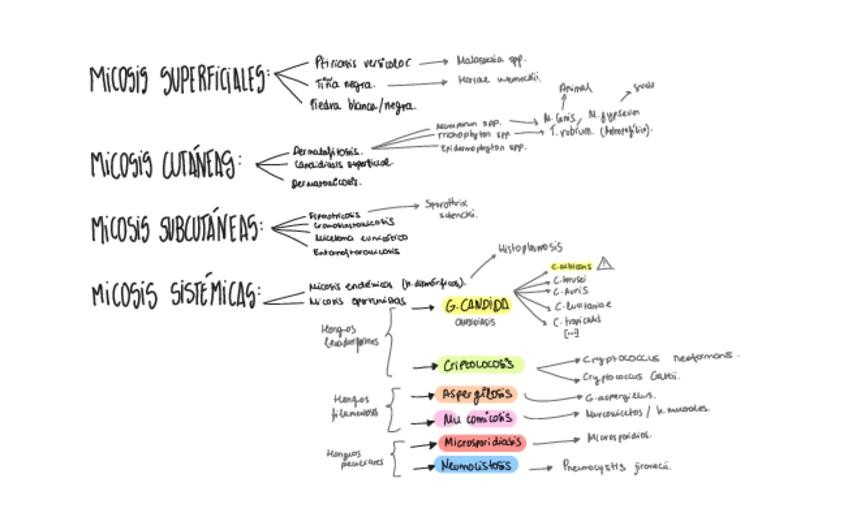 MICOSIS SUPERFICIALES:
Ptiriasis versicolor → Malassezia spp.
Tiña negra. → Hortae werneckii.
Piedra blanca/negra.
MICOSIS CUTÁNEAS:
Dermatofitosis.
Candidiasis superficial.
Dermatomicosis.
Microsporum spp. → M. Canis, M. gypseum
Animal
suelo
Trichophyton spp → T. rubrum. (Antropofílico).
Epidermophyton spp.
MICOSIS SUBCUTÁNEAS:
Esporotricosis → Sporothrix
schenckii.
Cromoblastomicosis
Micetoma eumicótico
Entomoftoromicosis
MICOSIS SISTÉMICAS:
Micosis endémicas (h. dimórficos). → Histoplasmosis
Micosis oportunistas
Hongos
levaduriformes
→ G. CANDIDA
CANDIDIASIS
C. albicans
C. krusei
C. Auris
C. tropicalis
[...]
→ Criptococosis
Cryptococcus neoformans.
Cryptococcus Gattii.
Hongos
filamentosos
→ Aspergilosis → G. aspergillus.
→ Mucormicosis → / h. mucorales.
Hongos
peculiares
→ Microsporidiasis → Microsporidios.
→ Neumocistosis → Pneumocystis jirovecii.